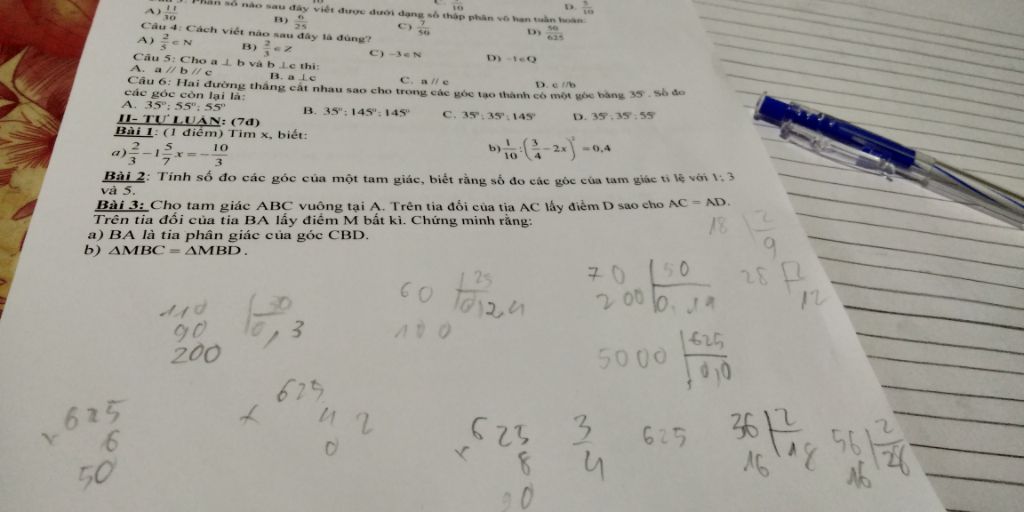 Phân số nào sau đây viết được dưới dạng số thập phân vô hạn tuần hoàn:
A) 11/30 B) 6/25 C) 7/50 D) 50/625
Câu 4: Cách viết nào sau đây là đúng?
A) 2/5 ∈ N B) 2/3 ∈ Z C) -3 ∈ N D) -1 ∈ Q
Câu 5: Cho a ⊥ b và b ⊥ c thì:
A. a // b // c B. a ⊥ c C. a // c D. c //b
Câu 6: Hai đường thẳng cắt nhau sao cho trong các góc tạo thành có một góc bằng 35º. Số đo
các góc còn lại là:
A. 35º; 55º; 55º B. 35º; 145º; 145º C. 35º; 35º; 145º D. 35º; 35º; 55º
II- TỰ LUẬN: (7đ)
Bài 1: (1 điểm) Tìm x, biết:
a) 2/3 - 1 5/7 x = - 10/3 b) 1/10 : (3/4 - 2x)² = 0,4
Bài 2: Tính số đo các góc của một tam giác, biết rằng số đo các góc của tam giác tỉ lệ với 1; 3
và 5.
Bài 3: Cho tam giác ABC vuông tại A. Trên tia đối của tia AC lấy điểm D sao cho AC = AD.
Trên tia đối của tia BA lấy điểm M bất kì. Chứng minh rằng:
a) BA là tia phân giác của góc CBD.
b) ΔMBC = ΔMBD.
18 2
9
60 25
0,24
100
70 50
200
28 2
12
110 30
90 0,3
200
5000 625
0,0
625
x 6
50
625
x 4 2
0
625
x 8
3/4
625
36 2
16 18
56 2
16 28